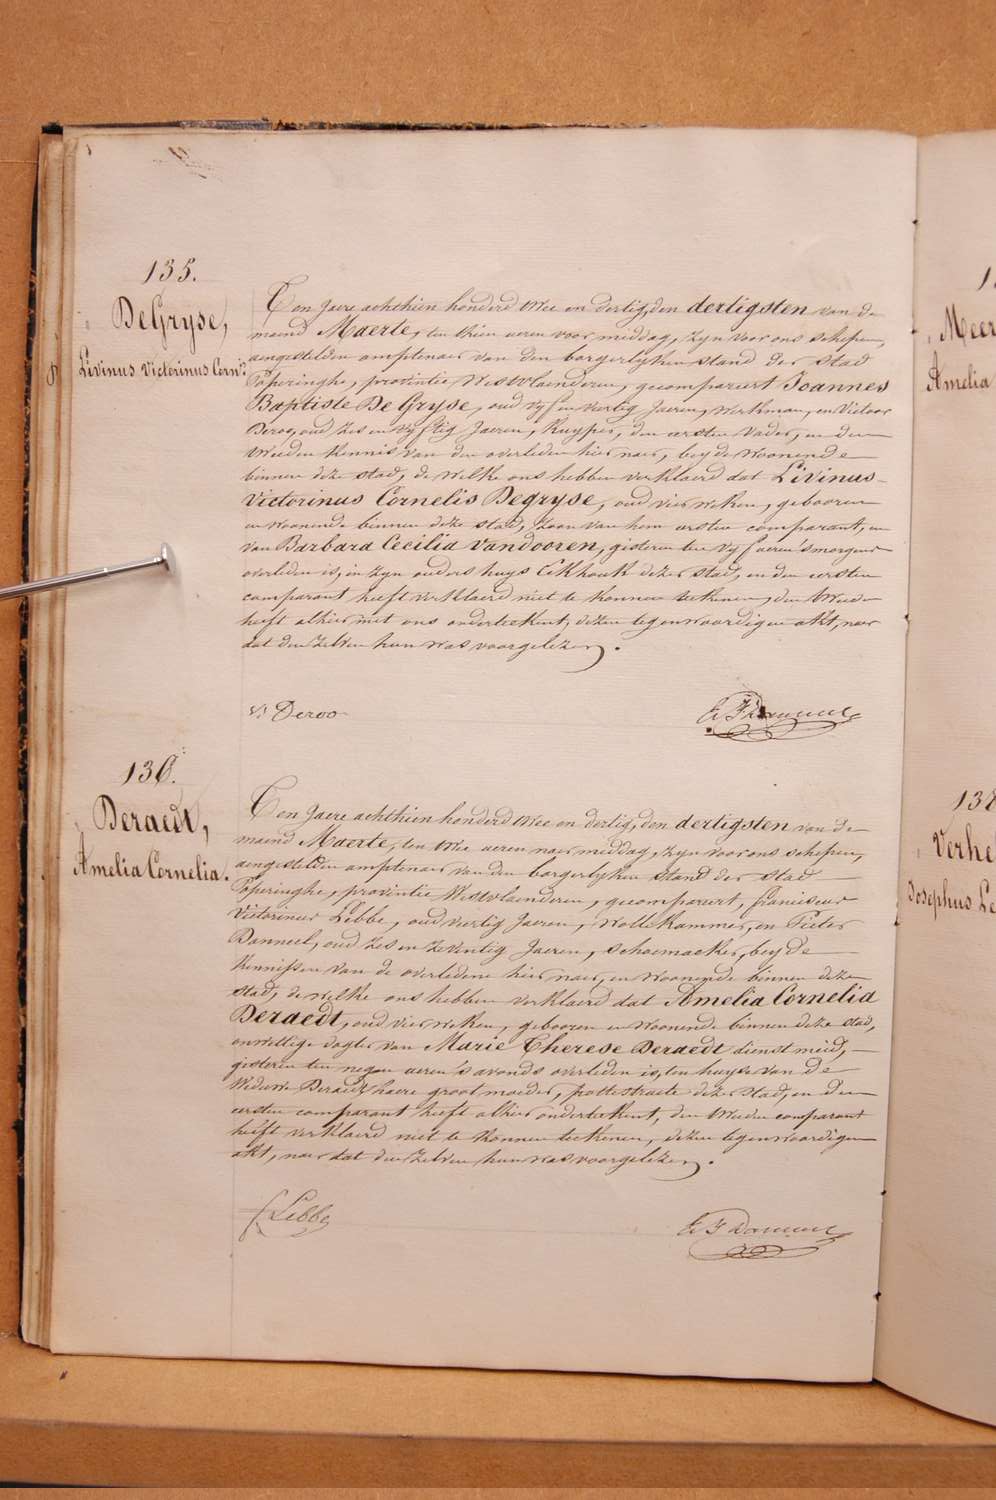 135.
DeGryse,
Livinus Victorinus Corn:s
Ten Jaere achthien honderd twee en dertig, den dertigsten van de
maend Maerte, ten thien ueren voor middag, zyn voor ons schepen,
aengestelden amptenaer van den borgerlyken stand der stad
Poperinghe, provintie Westvlaenderen, gecompareert Joannes
Baptiste De Gryse, oud vyf en veertig Jaeren, werkman, en Victoor
Deroo, oud zes en vyftig Jaeren, kuyper, den eersten vader, en den
tweeden kennis van den overleden hier naer, beyde woonende
binnen deze stad, de welke ons hebben verklaerd dat Livinus
Victorinus Cornelis Degryse, oud vier weken, gebooren
en woonende binnen deze stad, zoon van hem eersten comparant, en
van Barbara Cecilia Vandooren, gisteren ten vyf ueren 's morgens
overleden is, in zyn ouders huys Eekhoek dezer stad, en den eersten
comparant heeft verklaerd niet te konnen teekenen, den tweeden
heeft alhier met ons onderteekent, dezen tegenwoordigen akt, naer
dat den zelven hun was voorgelezen.
v: Deroo
136.
Deraedt,
Amelia Cornelia.
Ten Jaere achthien honderd twee en dertig, den dertigsten van de
maend Maerte, ten twee ueren naer middag, zyn voor ons schepen,
aengestelden amptenaer van den borgerlyken stand der stad
Poperinghe, provintie Westvlaenderen, gecompareert, franciscus
Victorinus Lebbe, oud veertig Jaeren, wollekammer, en Pieter
Danneel, oud zes en zeventig Jaeren, schoemaeker, beyde
kennissen van de overledene hier naer, en woonende binnen deze
stad, de welke ons hebben verklaerd dat Amelia Cornelia
Deraedt, oud vier weken, gebooren en woonende binnen deze stad,
onwettige dogter van Marie Therese Deraedt dienstmeid,
gisteren ten negen ueren 's avonds overleden is, ten huyse van de
Weduwe Deraedt haere grootmoeder, pottestraete dezer stad, en den
eersten comparant heeft alhier onderteekent, den tweeden comparant
heeft verklaerd niet te konnen teekenen, dezen tegenwoordigen
akt, naer dat den zelven hun was voorgelezen.
f Lebbe
Meer
Amelia
Verhe
Josephus Le